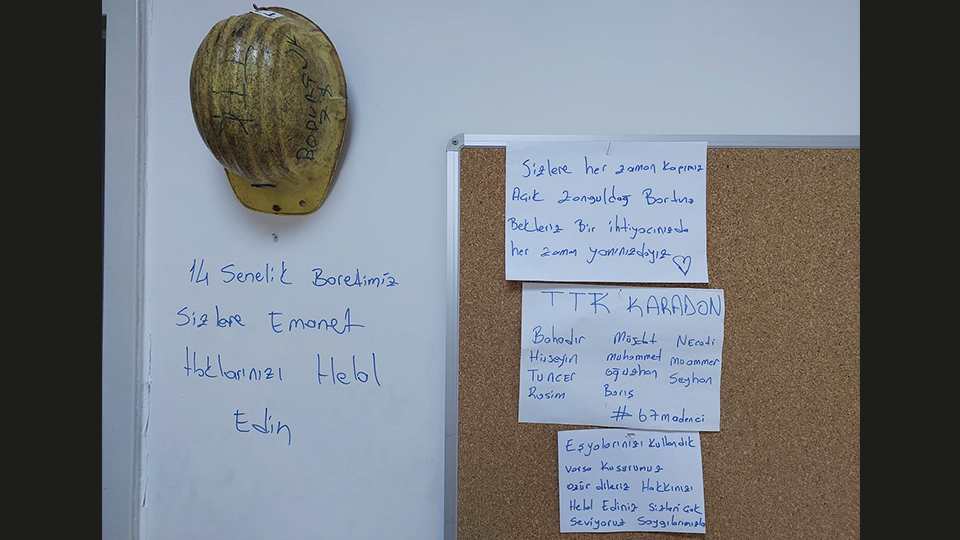 TTK
BODURTUK
14 Senelik Boretimiz
Sizlere Emanet
Haklarınızı Helal
Edin
Sizlere her zaman Kapımız
Açık Zonguldağ Bartına
Bekleriz Bir ihtiyacınızda
her zaman yanınızdayız ♡
TTK KARADON
Bahadır Müjdat Necati
Hüseyin muhammet muammer
TUNCER oğuzhan Seyhan
Rasim Barış
#67madenci
Eşyalarınızı Kullandık
varsa Kusurumuz
özür dileriz Hakkınızı
Helal Ediniz Sizleri Çok
Seviyoruz Saygılarımızla